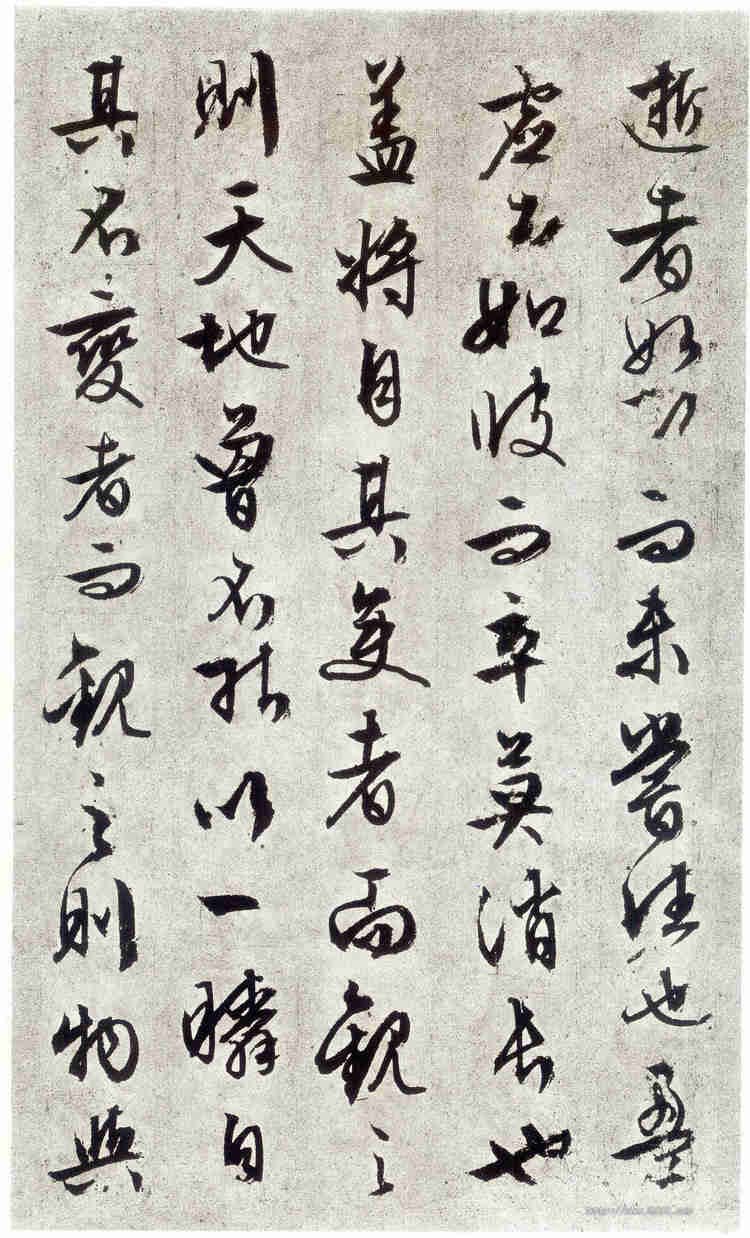 逝者如斯而未嘗往也盈
虛者如彼而卒莫消長也
盖將自其變者而觀之
則天地曾不能以一瞬自
其不變者而觀之則物與